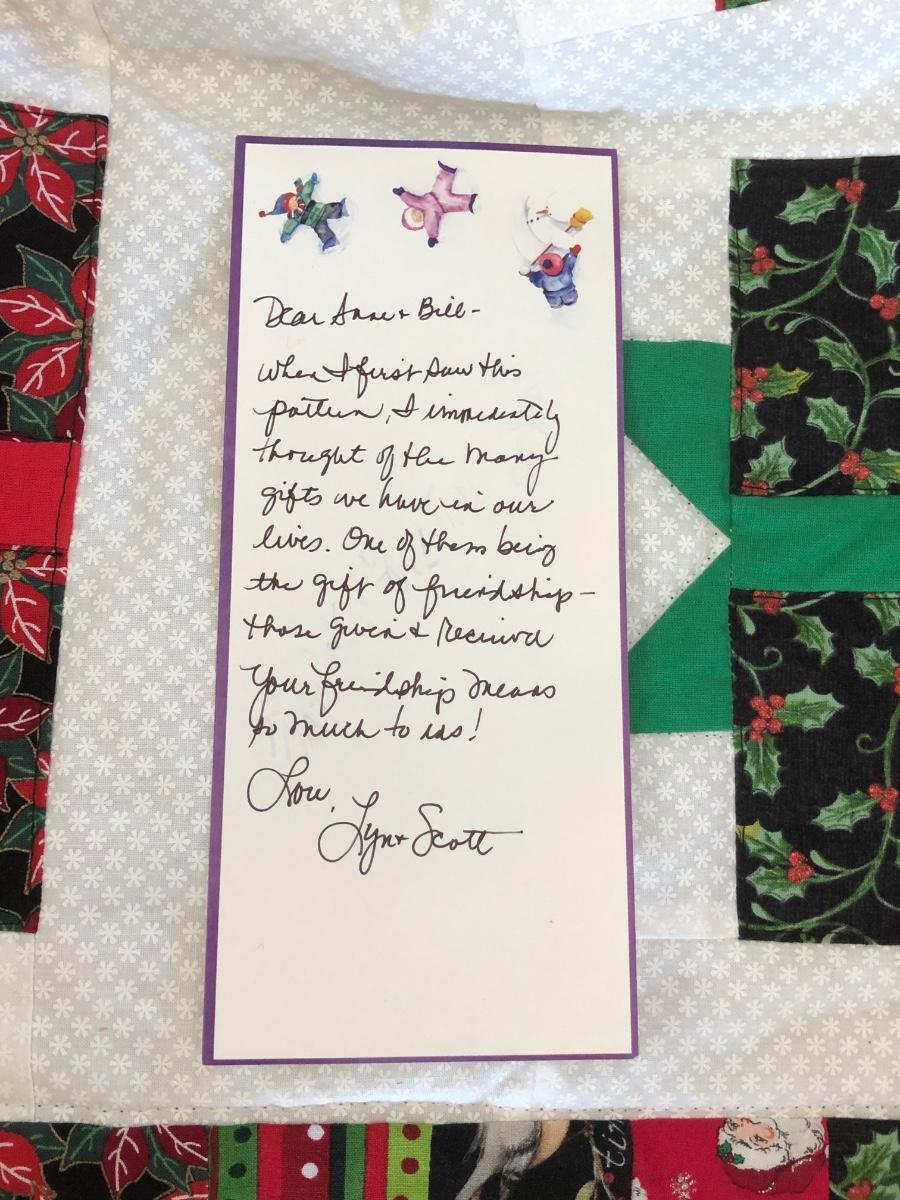 Dear Anne + Bill -
When I first saw this
pattern, I immediately
thought of the many
gifts we have in our
lives. One of them being
the gift of friendship -
those given & received
Your friendship means
so much to us!
Love,
Lyn + Scott
tin